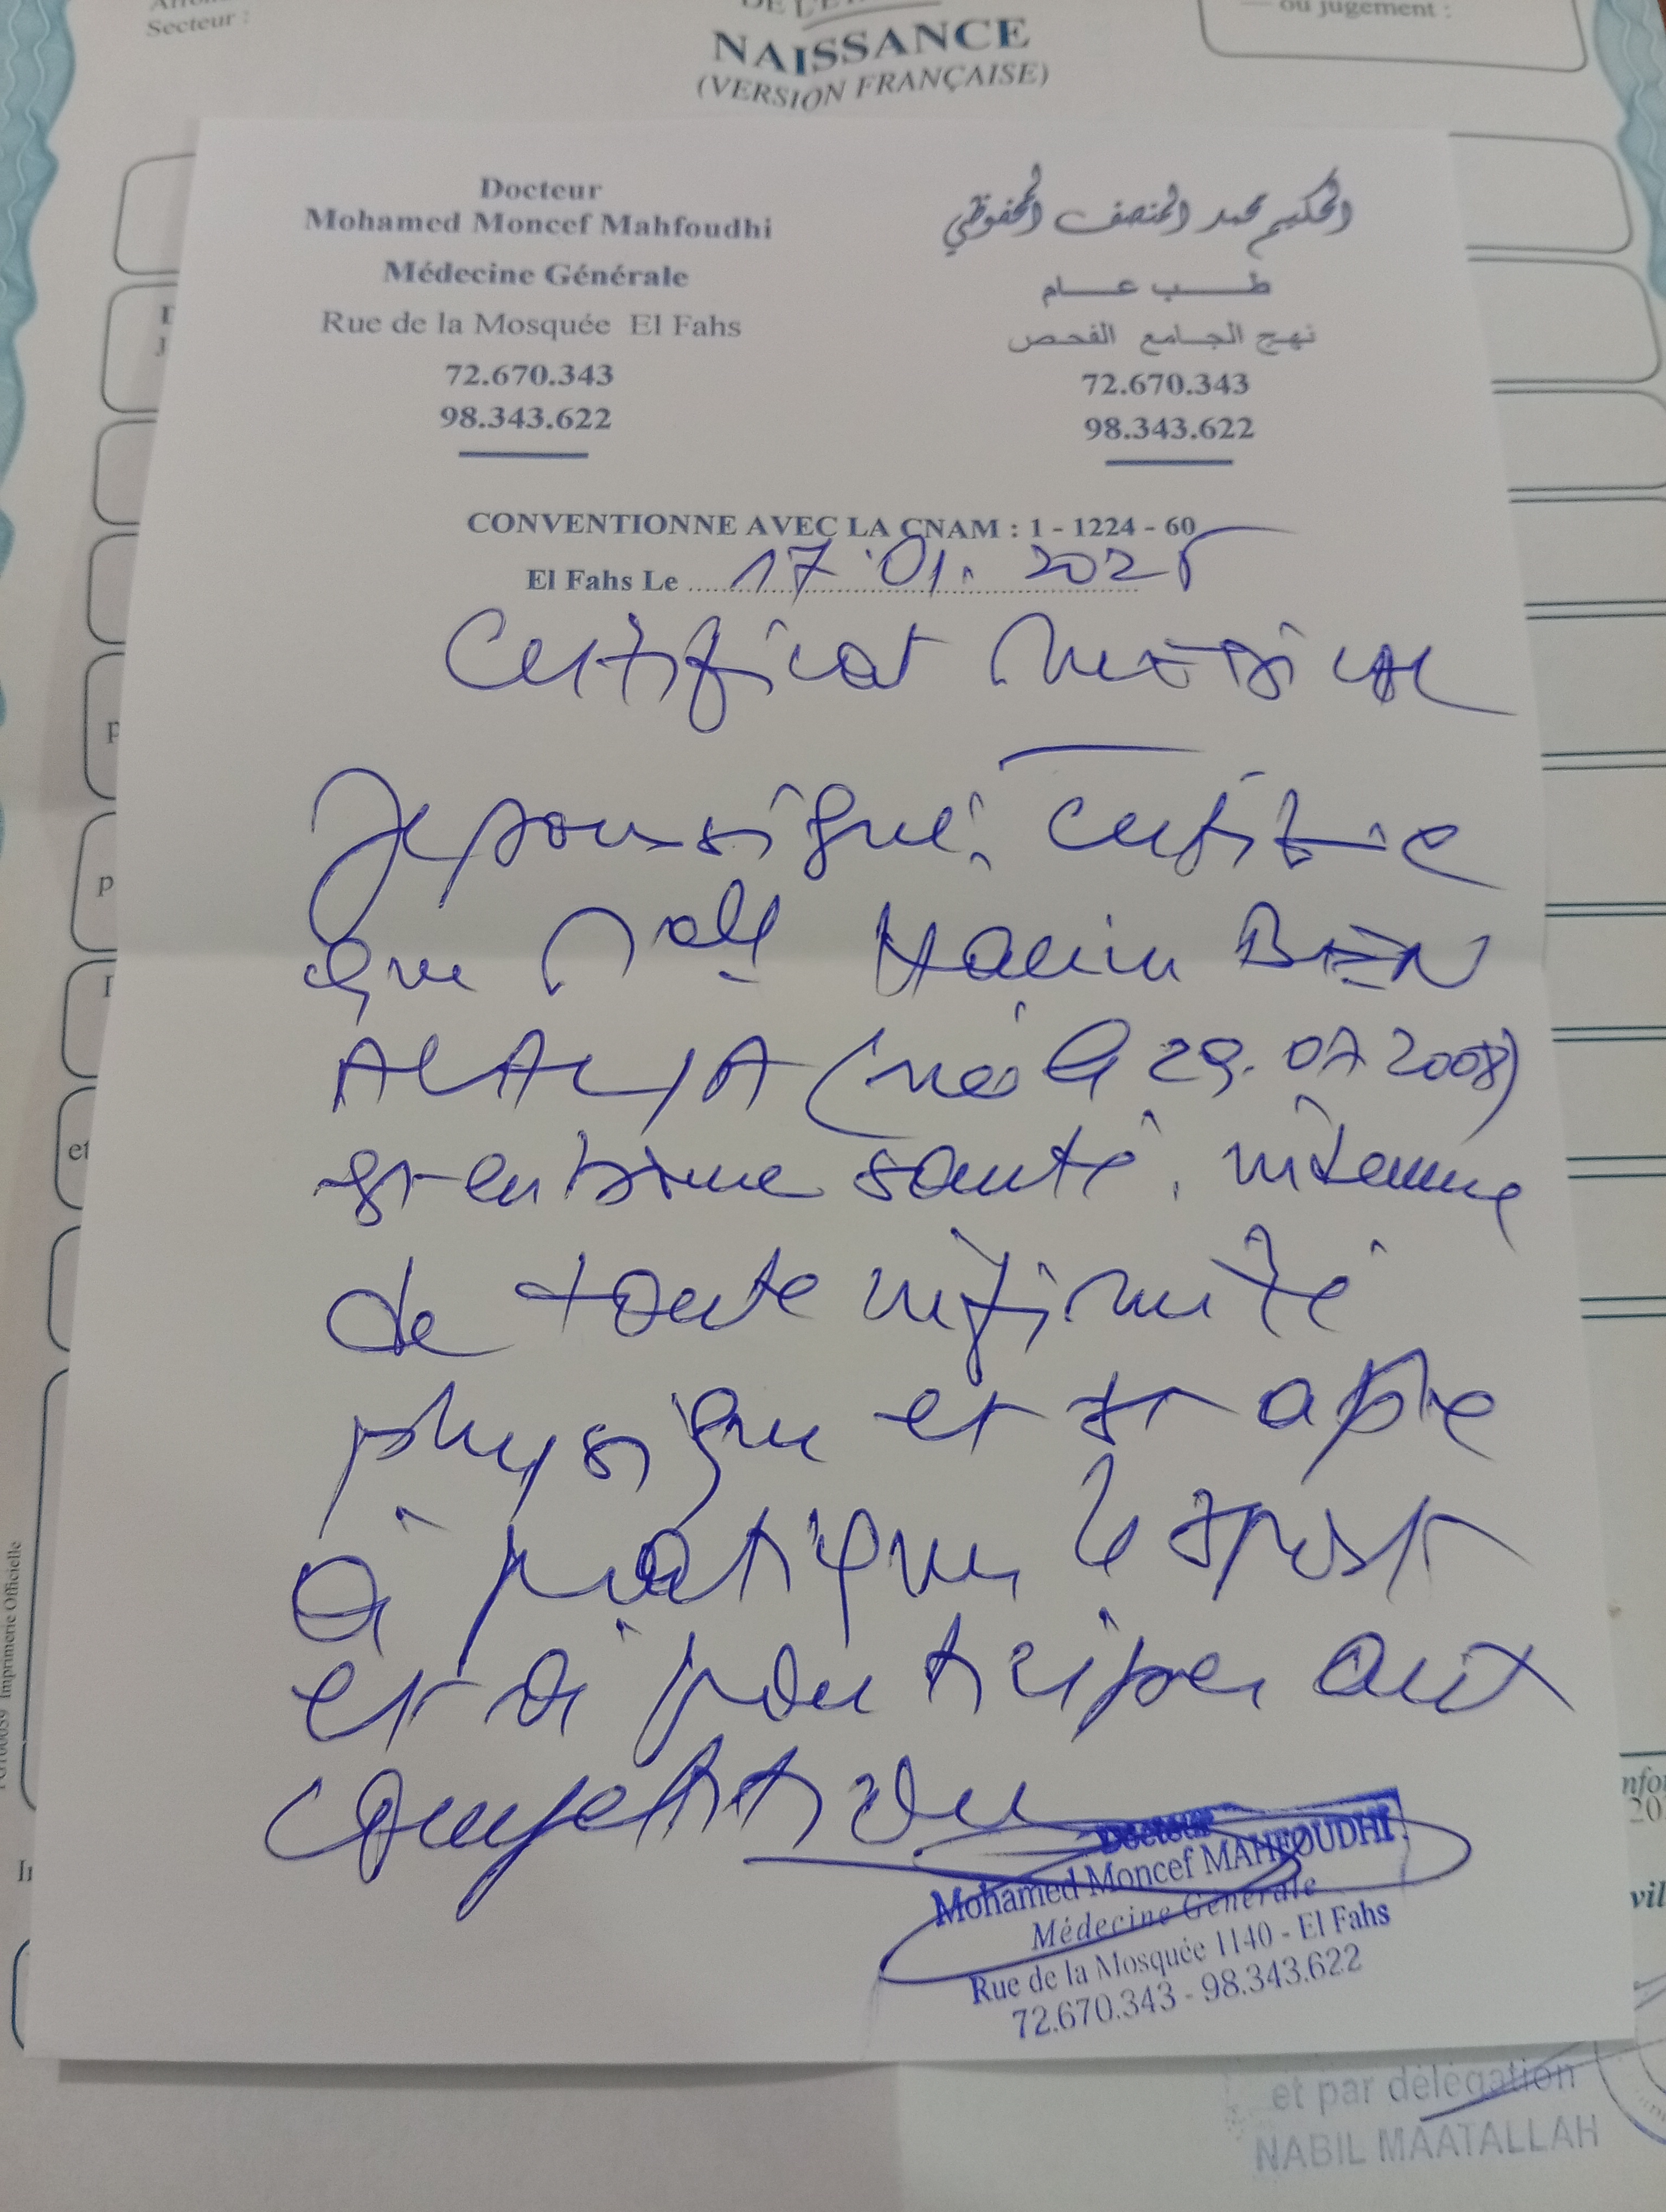 Secteur :
ou jugement :
NAISSANCE
(VERSION FRANÇAISE)
Docteur
Mohamed Moncef Mahfoudhi
Médecine Générale
Rue de la Mosquée El Fahs
72.670.343
98.343.622
الحكيم محمد المنصف المحفوظي
طب عام
نهج الجامع الفحص
72.670.343
98.343.622
CONVENTIONNE AVEC LA CNAM : 1 - 1224 - 60
El Fahs Le 17.01.2025
Certificat Medical
Je soussigné, certifie
que BEN
ALAYA (née le 29.07.2008)
est en bonne santé, indemne
de toute infirmité
physique et est apte
à pratiquer le sport
et à participer aux
compétitions
Docteur
Mohamed Moncef MAHFOUDHI
Médecine Générale
Rue de la Mosquée 1140 - El Fahs
72.670.343 - 98.343.622
Imprimerie Officielle
et par délégation
NABIL MAATALLAH